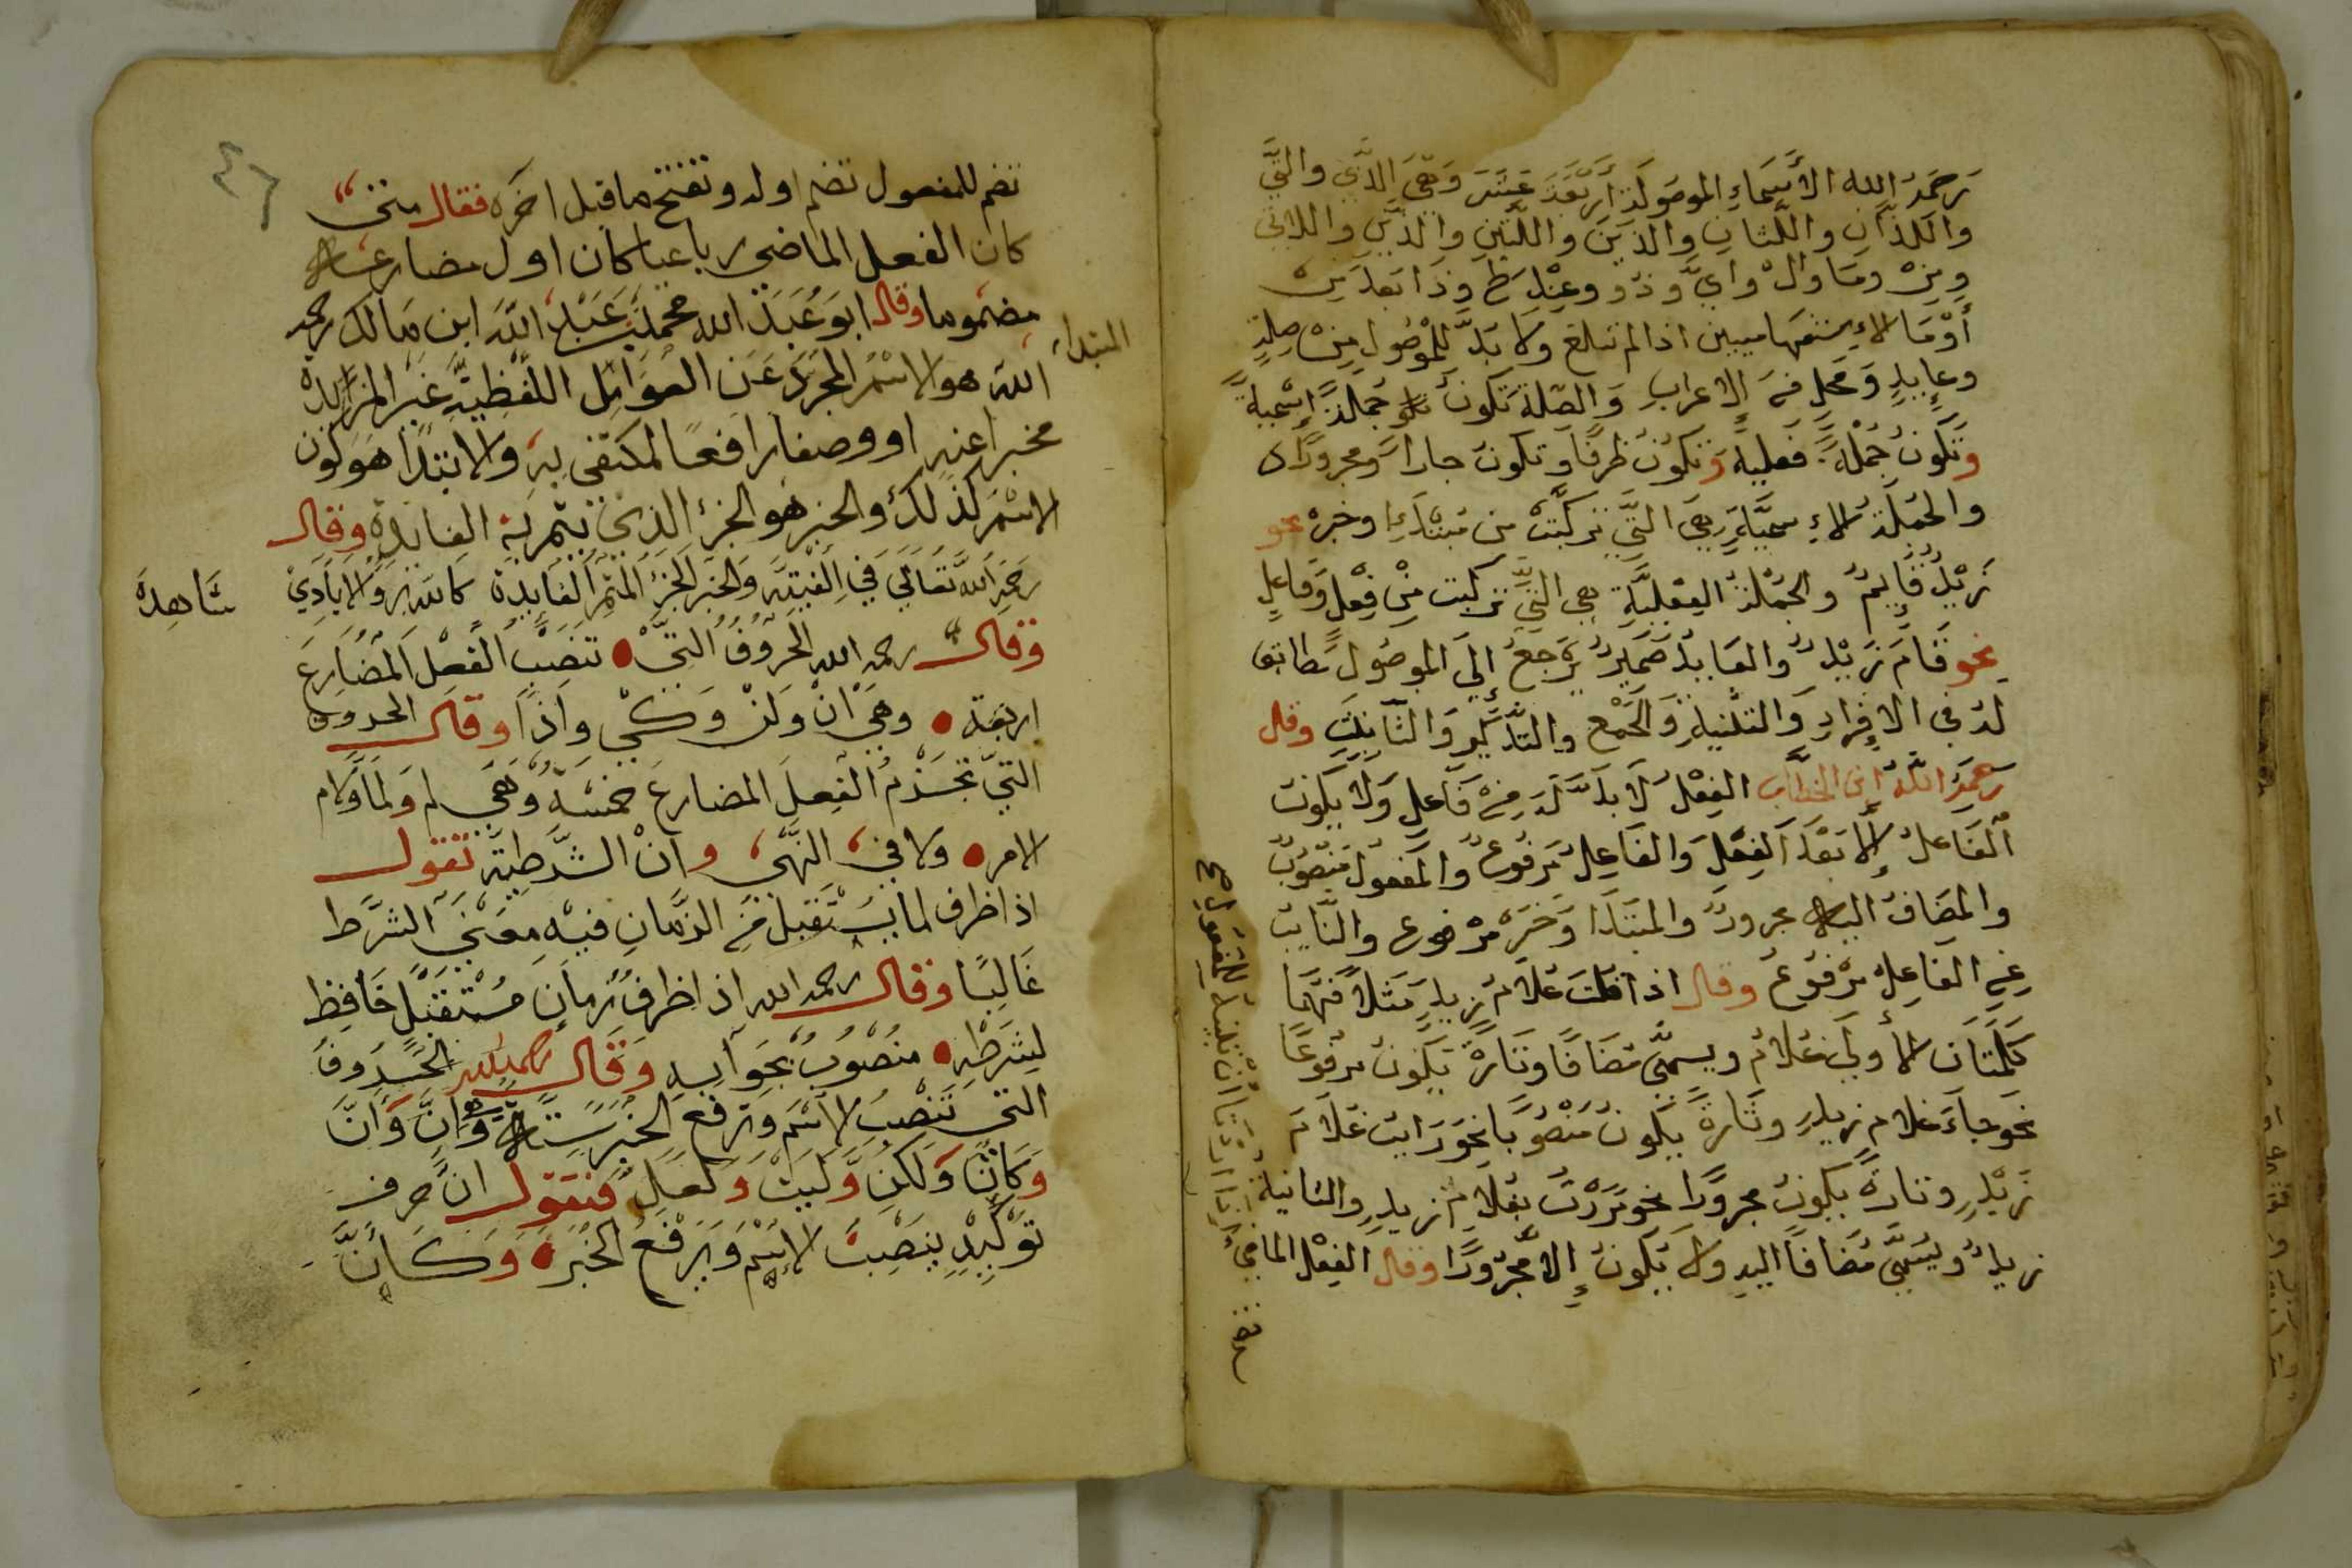 رحمه الله الأسماء الموصولة أربعة عشر وهي الذي والتي
واللذان واللتان والذين واللتين والذين واللاتي
ومن وما وال واي وذو وعند طي وذا بعد من
أو ما الاستفهاميين اذا لم تلغ ولا بد للموصول من صلة
وعايد ومحل من الاعراب والصلة تكون جملة إسمية
وتكون جملة فعلية وتكون ظرفا وتكون جارا ومجرورا
والجملة الإسمية هي التي تركبت من مبتداء وخبر نحو
زيد قايم والجملة الفعلية هي التي تركبت من فعل وفاعل
نحو قام زيد والعايد ضمير يرجع إلي الموصول مطابق
له في الإفراد والتثنية والجمع والتذكير والتانيث وقال
رحمه الله ابن الخطاب الفعل لا بد له من فاعل ولا يكون
الفاعل إلا بعد الفعل والفاعل مرفوع والمفعول منصوب
والمضاف اليه مجرور والمبتدا وخبره مرفوع والنايب
عن الفاعل مرفوع وقال اذا قلت غلام زيد مثلا فهما
كلمتان الأولي غلام ويسمي مضافا وتارة يكون مرفوعا
نحو جاء غلام زيد وتارة يكون منصوبا نحو رايت غلام
زيد وتارة يكون مجرورا نحو مررت بغلام زيد والثانية
زيد ويسمي مضافا اليه ولا يكون إلا مجرورا وقال الفعل الماضي
اذا اردنا أن نبنيه للمفعول صح
٤٦
تضم للمفعول تضم اوله وتفتح ما قبل اخره فقال متي
كان الفعل الماضي رباعيا كان اول مضارعه
مضموما وقال ابو عبد الله محمد بن عبد الله ابن مالك رحمه
المبتداء
الله هو الاسم المجرد عن العوامل اللفظية غير المزايدة
مخبرا عنه او وصفا رافعا لمكتفى به والابتدا هو كون
الاسم كذلك والخبر هو الجزء الذي تتم به الفايدة وقال
رحمه الله تعالي في الفيته والخبر الجزء المتم الفايدة كالله بر والايادي
شاهدة
وقال رحمه الله الحروف التي تنصب الفعل المضارع
اربعة وهي ان ولن وكي واذا وقال الحروف
التي تجزم الفعل المضارع خمسة وهي لم ولما ولام
الامر ولا في النهي وان الشرطية تقول
اذا ظرف لما يستقبل من الزمان فيه معني الشرط
غالبا وقال رحمه الله اذا ظرف زمان مستقبل خافظ
لشرطه منصوب بجوابه وقال رحمه الله الحروف
التي تنصب الاسم وترفع الخبر ستة وهي إن وأن
وكأن ولكن وليت ولعل فنقول ان حرف
توكيد ينصب الإسم ويرفع الخبر وكأن